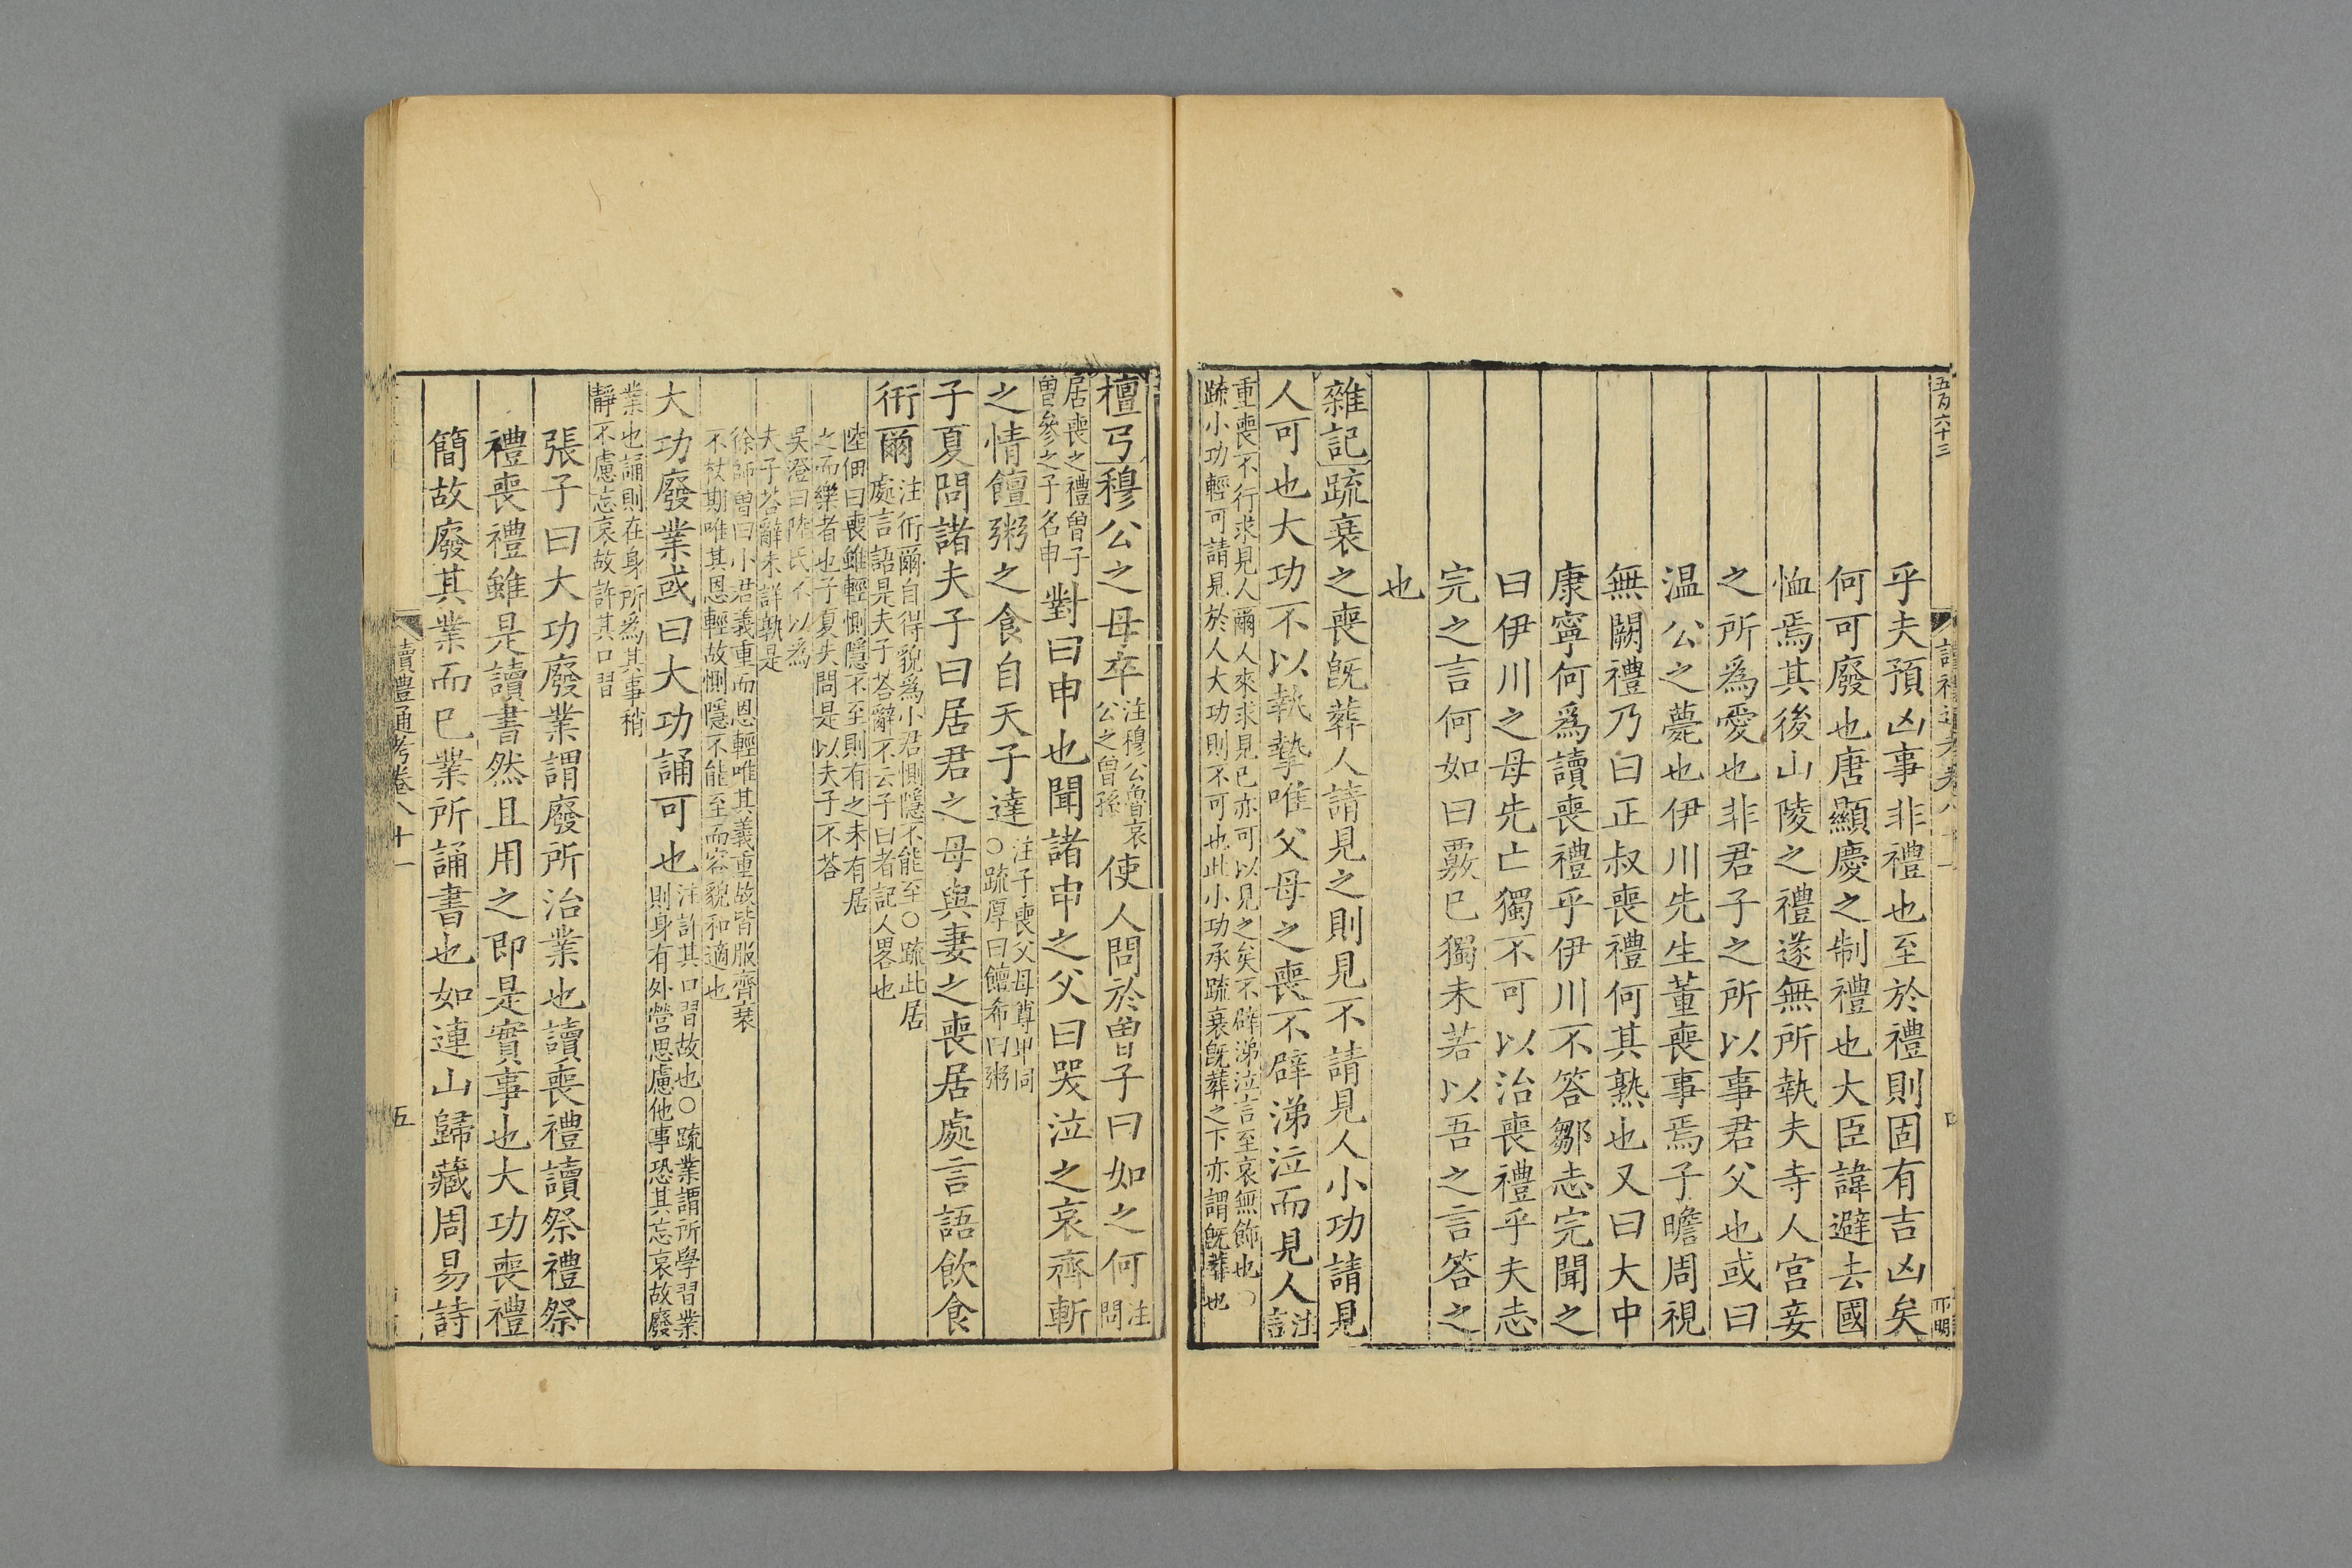 五百六十三
乎夫預凶事非禮也至於禮則固有吉凶矣
何可廢也唐顯慶之制禮也大臣諱避去國
恤焉其後山陵之禮遂無所執夫寺人宮妾
之所爲愛也非君子之所以事君父也或曰
温公之薨也伊川先生董喪事焉子瞻周視
無闕禮乃曰正叔喪禮何其熟也又曰大中
康寧何爲讀喪禮乎伊川不答鄒志完聞之
曰伊川之母先亡獨不可以治喪禮乎夫志
完之言何如曰覈巳獨未若以吾之言答之
也
雜記疏衰之喪旣葬人請見之則見不請見人小功請見
人可也大功不以執摯唯父母之喪不辟涕泣而見人注言
重喪不行求見人爾人來求見已亦可以見之矣不辟涕泣言至哀無飾也○
疏小功輕可請見於人大功則不可也此小功承疏衰旣葬之下亦謂旣葬也
檀弓穆公之母卒注穆公魯哀公之曾孫使人問於曾子曰如之何注問
居喪之禮曾子曾參之子名申對曰申也聞諸申之父曰哭泣之哀齊斬
之情饘粥之食自天子達注子喪父母尊卑同○疏厚曰饘希曰粥
子夏問諸夫子曰居君之母與妻之喪居處言語飲食
衎爾注衎爾自得貌爲小君惻隱不能至○疏此居處言語是夫子荅辭不云子曰者記人畧也
陸佃曰喪雖輕惻隱不至則有之未有居之而樂者也子夏失問是以夫子不荅
吳澄曰陸氏不以爲夫子荅辭未詳孰是
徐師曾曰小君義重而恩輕唯其義重故皆服齊衰不杖期唯其恩輕故惻隱不能至而容貌和適也
大功廢業或曰大功誦可也注許其口習故也○疏業謂所學習業則身有外營思慮他事恐其忘哀故廢
業也誦則在身所爲其事稍靜不慮忘哀故許其口習
張子曰大功廢業謂廢所治業也讀喪禮讀祭禮祭
禮喪禮雖是讀書然且用之即是實事也大功喪禮
簡故廢其業而巳業所誦書也如連山歸藏周易詩
讀禮通考卷八十一
五